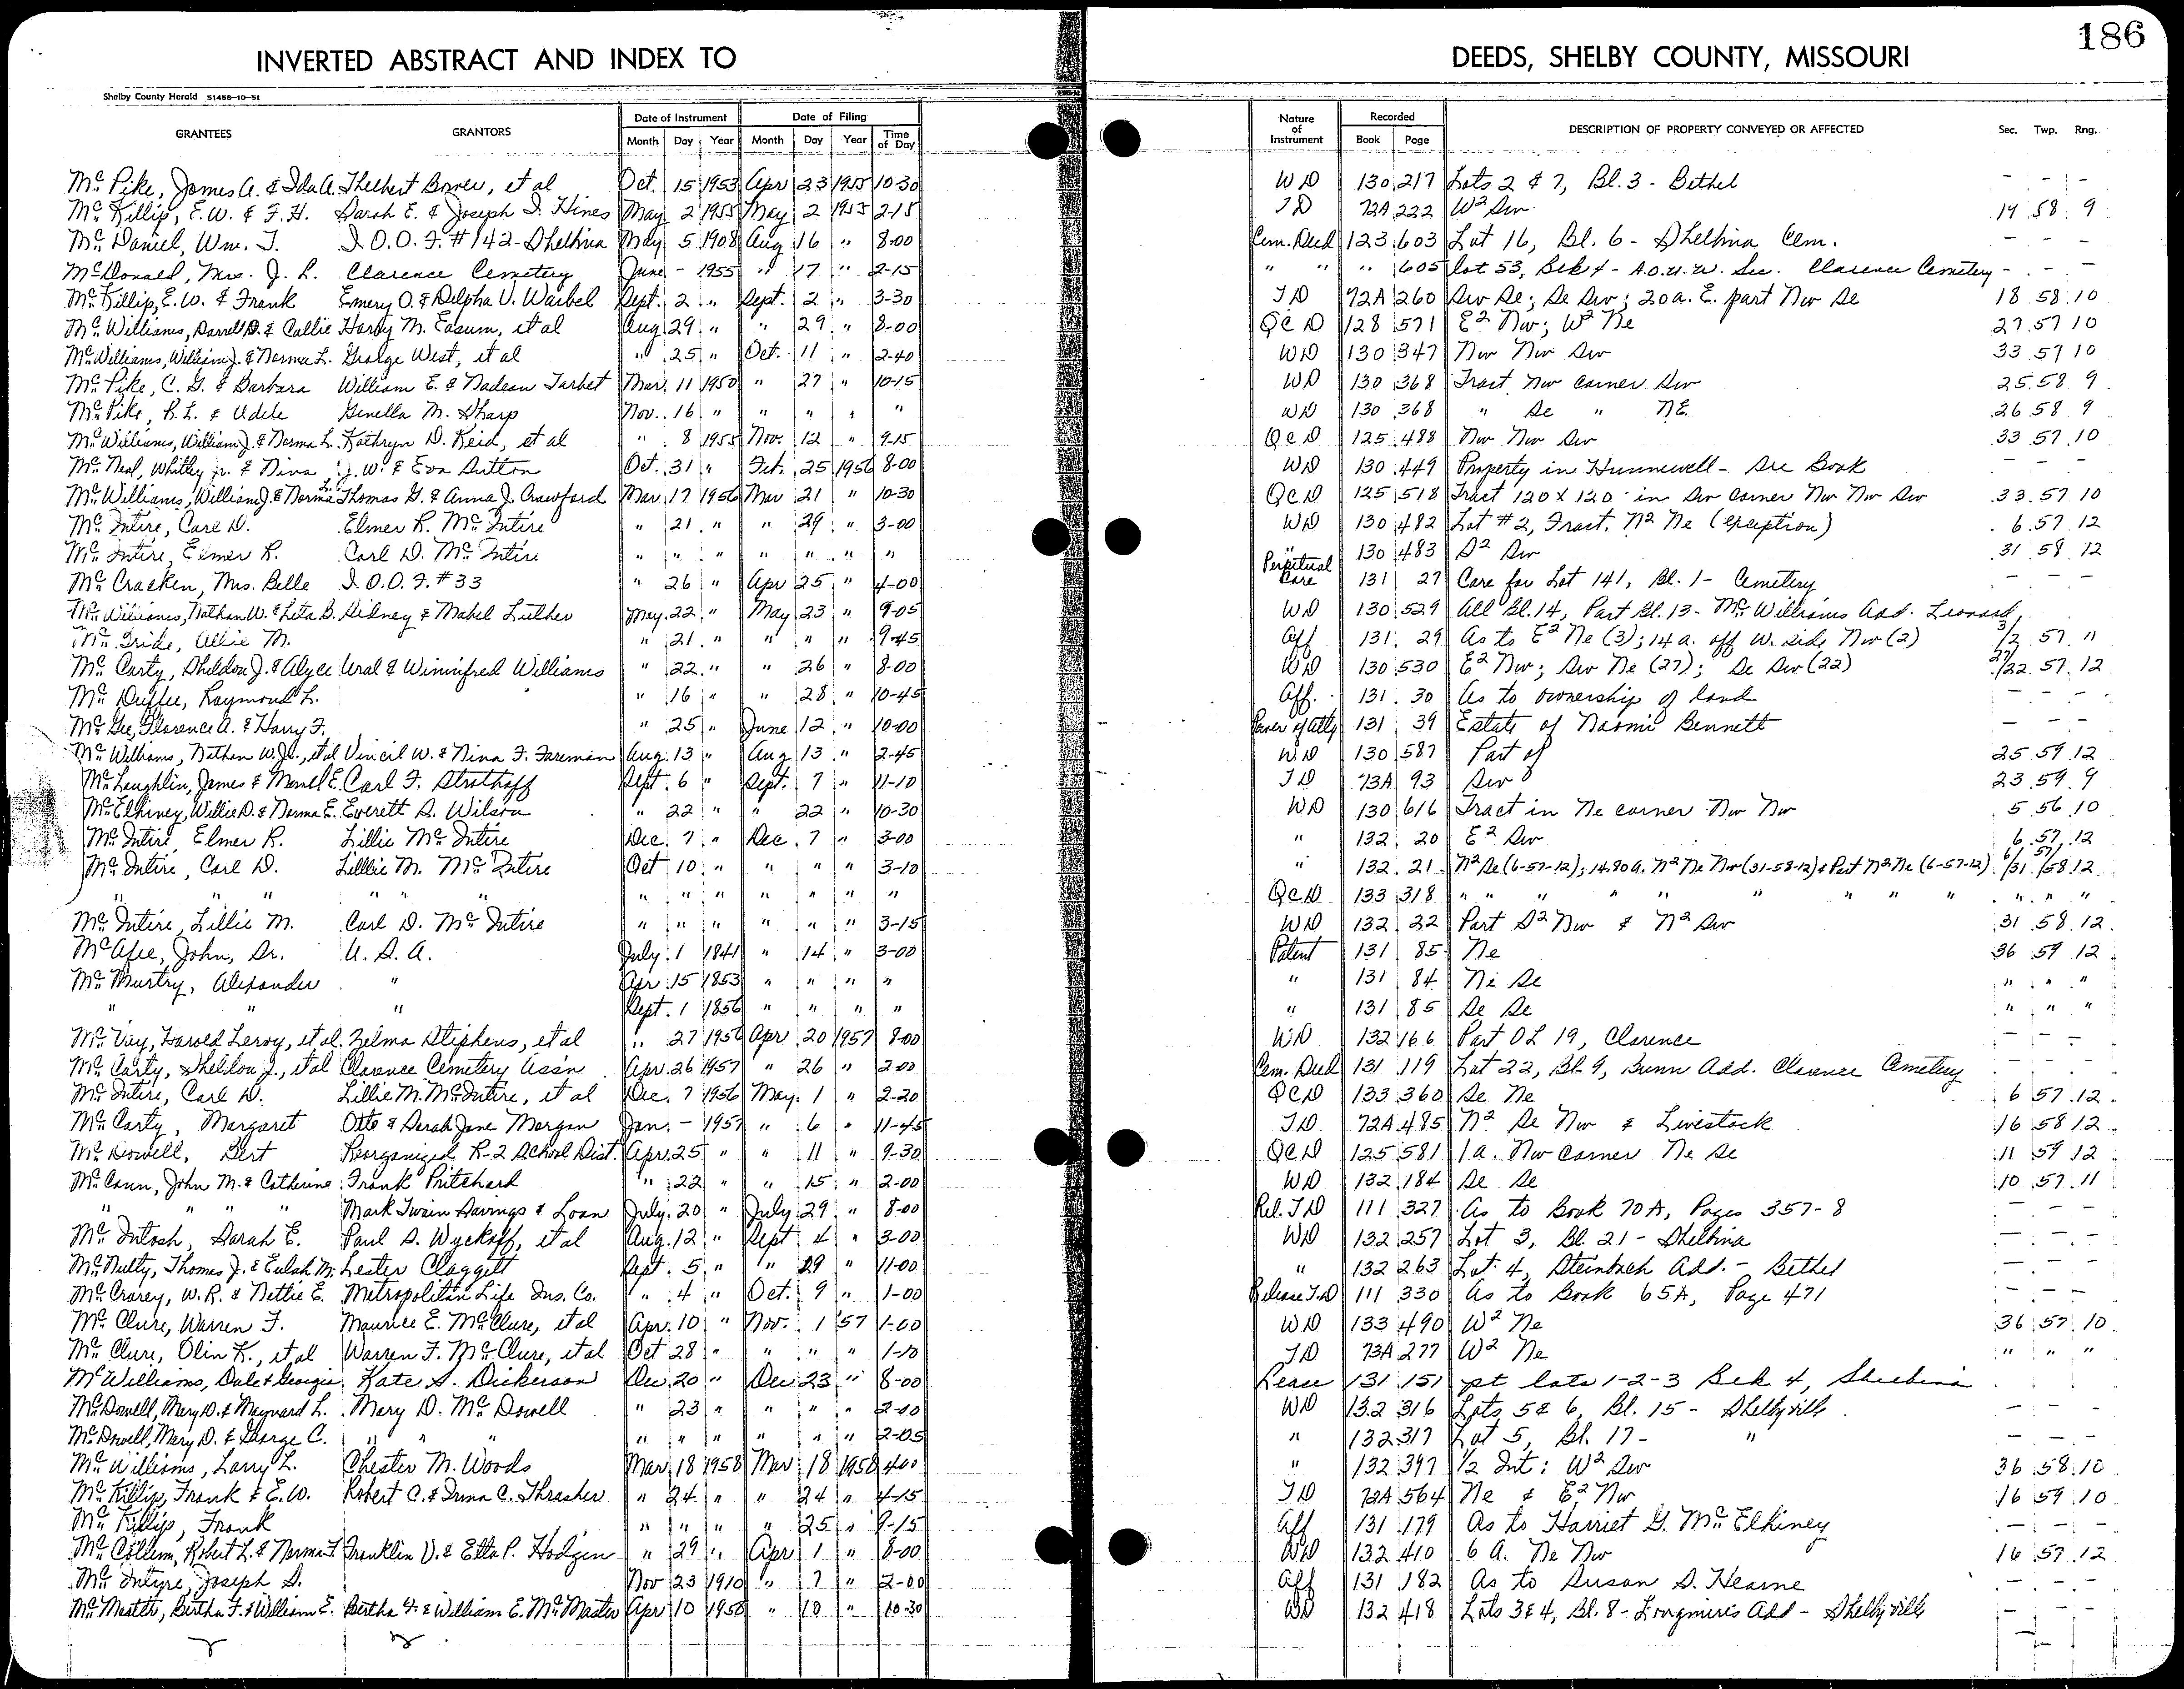 186
INVERTED ABSTRACT AND INDEX TO DEEDS, SHELBY COUNTY, MISSOURI
Shelby County Herald 51458-10-51
GRANTEES GRANTORS Date of Instrument Date of Filing Nature of Instrument Recorded DESCRIPTION OF PROPERTY CONVEYED OR AFFECTED Sec. Twp. Rng.
Month Day Year Month Day Year Time of Day Book Page
Mc Pike, James A. & Ida A. Thelbert Bower, et al Oct. 15 1953 Apr 23 1955 10-30 WD 130 217 Lots 2 & 7, Bl. 3 - Bethel - - -
Mc Killip, E.W. & F.H. Sarah E. & Joseph I. Hines May 2 1955 May 2 1955 2-15 TD 72A 222 W2 Sw 19 58 9
Mc Daniel, Wm. T. I.O.O.F. #142 - Shelbina May 5 1908 Aug 16 " 8-00 Cem. Deed 123 603 Lot 16, Bl. 6 - Shelbina Cem. - - -
McDonald, Mrs. J. L. Clarence Cemetery June - 1955 " 17 " 2-15 " " " 605 lot 53, Blk 4 - A.O.U.W. Sec. Clarence Cemetery - - -
Mc Killip, E.W. & Frank Emery O. & Delpha V. Waibel Sept. 2 " Sept. 2 " 3-30 TD 72A 260 Sw Se; Se Sw; 20a. E. part Nw Se 18 58 10
Mc Williams, Darrell D. & Callie Hardy M. Easum, et al Aug. 29 " " 29 " 8-00 QCD 128 571 E2 Nw; W2 Ne 27 57 10
McWilliams, William J. & Norma L. George West, et al " 25 " Oct. 11 " 2-40 WD 130 347 Nw Nw Sw 33 57 10
Mc Pike, C. G. & Barbara William E. & Nadean Tarbet Mar. 11 1950 " 27 " 10-15 WD 130 368 Tract Nw corner Sw 25 58 9
Mc Pike, R. L. & Adele Genella M. Sharp Nov. 16 " " " " " WD 130 368 " Se " NE 26 58 9
Mc Williams, William J. & Norma L. Kathryn D. Reid, et al " 8 1955 Nov. 12 " 9-15 QCD 125 488 Nw Nw Sw 33 57 10
Mc Neal, Whitley Jr. & Nina J. W. & Eva Sutton Oct. 31 " Feb. 25 1956 8-00 WD 130 449 Property in Hunnewell - See Book - - -
Mc Williams, William J. & Norma L. Thomas G. & Anna J. Crawford Mar. 17 1956 Mar 21 " 10-30 QCD 125 518 Tract 120 x 120 in Sw corner Nw Nw Sw 33 57 10
Mc Intire, Carl D. Elmer R. McIntire " 21 " " 29 " 3-00 WD 130 482 Lot #2, Fract. N2 Ne (exception) 6 57 12
Mc Intire, Elmer R. Carl D. McIntire " " " " " " " " 130 483 S2 Sw 31 58 12
Mc Cracken, Mrs. Belle I.O.O.F. #33 " 26 " Apr 25 " 4-00 Perpetual Care 131 27 Care for Lot 141, Bl. 1 - Cemetery - - -
Mc Williams, Nathan W. & Leta B. Sidney & Mabel Luther May 22 " May 23 " 9-05 WD 130 529 All Bl. 14, Part Bl. 13 - Mc Williams Add. Leonard
Mc Bride, Allie M. " 21 " " " " 9-45 Aff 131 29 As to E2 Ne (3); 14 a. off W. side Nw (2) 3/2 57 11
Mc Carty, Sheldon J. & Alyce Ural & Winnifred Williams " 22 " " 26 " 8-00 WD 130 530 E2 Nw; Sw Ne (27); Se Sw (22) 27/22 57 12
Mc Duffee, Raymond L. " 16 " " 28 " 10-45 Aff. 131 30 As to ownership of land - - -
Mc Gee, Florence A. & Harry F. " 25 " June 12 " 10-00 Power of Atty 131 39 Estate of Naomi Bennett - - -
Mc Williams, Nathan W. Jr., et al Vincil W. & Nina F. Foreman Aug. 13 " Aug 13 " 2-45 WD 130 587 Part of 25 59 12
Mc Laughlin, James & Merrell E. Carl F. Strothoff Sept. 6 " Sept. 7 " 11-10 TD 73A 93 Sw 23 59 9
Mc Elhiney, Willie D. & Norma E. Everett S. Wilson " 22 " " 22 " 10-30 WD 130 616 Tract in Ne corner Nw Nw 5 56 10
Mc Intire, Elmer R. Lillie McIntire Dec. 7 " Dec. 7 " 3-00 " 132 20 E2 Sw 6 57 12
Mc Intire, Carl D. Lillie M. McIntire Oct 10 " " " " 3-10 " 132 21 N2 Se (6-57-12); 14.80 a. N2 Ne Nw (31-58-12) & Part N2 Ne (6-57-12) 6/31 57/58 12
" " " " " " " " " " " " " QCD 133 318 " " " " " " " " " " "
Mc Intire, Lillie M. Carl D. McIntire " " " " " " 3-15 WD 132 22 Part S2 Nw & N2 Sw 31 58 12
McAfee, John, Sr. U.S.A. July 1 1841 " 14 " 3-00 Patent 131 85 Ne 36 59 12
Mc Murtry, Alexander " Apr 15 1853 " " " " " 131 84 Ne Se " " "
" " " Sept. 1 1856 " " " " " 131 85 Se Se " " "
Mc Vey, Harold Leroy, et al. Zelma Stephens, et al " 27 1956 Apr 20 1957 8-00 WD 132 166 Part OL 19, Clarence - - -
Mc Carty, Sheldon J., et al Clarence Cemetery Ass'n Apr 26 1957 " 26 " 2-00 Cem. Deed 131 119 Lot 22, Bl. 9, Bunn Add. Clarence Cemetery - - -
Mc Intire, Carl D. Lillie M. McIntire, et al Dec. 7 1956 May 1 " 2-20 QCD 133 360 Se Ne 6 57 12
Mc Carty, Margaret Otto & Sarah Jane Morgan Jan. - 1957 " 6 " 11-45 TD 72A 485 N2 Se Nw & Livestock 16 58 12
Mc Dowell, Bert Reorganized R-2 School Dist. Apr. 25 " " 11 " 9-30 QCD 125 581 1a. Nw corner Ne Se 11 59 12
Mc Cann, John M. & Catherine Frank Pritchard " 22 " " 15 " 2-00 WD 132 184 Se Se 10 57 11
" " " " Mark Twain Savings & Loan July 20 " July 29 " 8-00 Rel. TD 111 327 As to Book 70A, Pages 357-8 - - -
Mc Intosh, Sarah E. Paul S. Wyckoff, et al Aug 12 " Sept 4 " 3-00 WD 132 257 Lot 3, Bl. 21 - Shelbina - - -
Mc Nulty, Thomas J. & Eulah M. Lester Claggett Sept 5 " " 29 " 11-00 " 132 263 Lot 4, Steinbach Add. - Bethel - - -
Mc Crarey, W.R. & Nettie E. Metropolitan Life Ins. Co. " 4 " Oct. 9 " 1-00 Release TD 111 330 As to Book 65A, Page 471 - - -
Mc Clure, Warren F. Maurice E. McClure, et al Apr 10 " Nov. 1 '57 1-00 WD 133 490 W2 Ne 36 57 10
Mc Clure, Olin K., et al Warren F. McClure, et al Oct 28 " " " " 1-10 TD 73A 277 W2 Ne " " "
McWilliams, Dale & Georgia Kate S. Dickerson Dec 20 " Dec 23 " 8-00 Lease 131 151 pt lots 1-2-3 Blk 4, Shelbina
McDowell, Mary D. & Maynard L. Mary D. McDowell " 23 " " " " 2-00 WD 132 316 Lots 5 & 6, Bl. 15 - Shelbyville - - -
McDowell, Mary D. & George C. " " " " " " " " " 2-05 " 132 317 Lot 5, Bl. 17 - " - - -
Mc Williams, Larry L. Chester M. Woods Mar 18 1958 Mar 18 1958 4-00 " 132 397 1/2 Int: W2 Sw 36 58 10
Mc Killip, Frank & E.W. Robert C. & Irma C. Thrasher " 24 " " 24 " 4-15 TD 72A 564 Ne & E2 Nw 16 59 10
Mc Killip, Frank " " " " 25 " 9-15 Aff 131 179 As to Harriet G. McElhiney - - -
Mc Collum, Robert L. & Norma F. Franklin V. & Etta P. Hodgin " 29 " Apr 1 " 8-00 WD 132 410 6 A. Ne Nw 16 57 12
Mc Intyre, Joseph S. Nov 23 1910 " 7 " 2-00 Aff 131 182 As to Susan S. Hearne - - -
Mc Master, Bertha F. & William E. Bertha F. & William E. McMaster Apr 10 1958 " 10 " 10-30 WD 132 418 Lots 3 & 4, Bl. 8 - Longmire's Add - Shelbyville